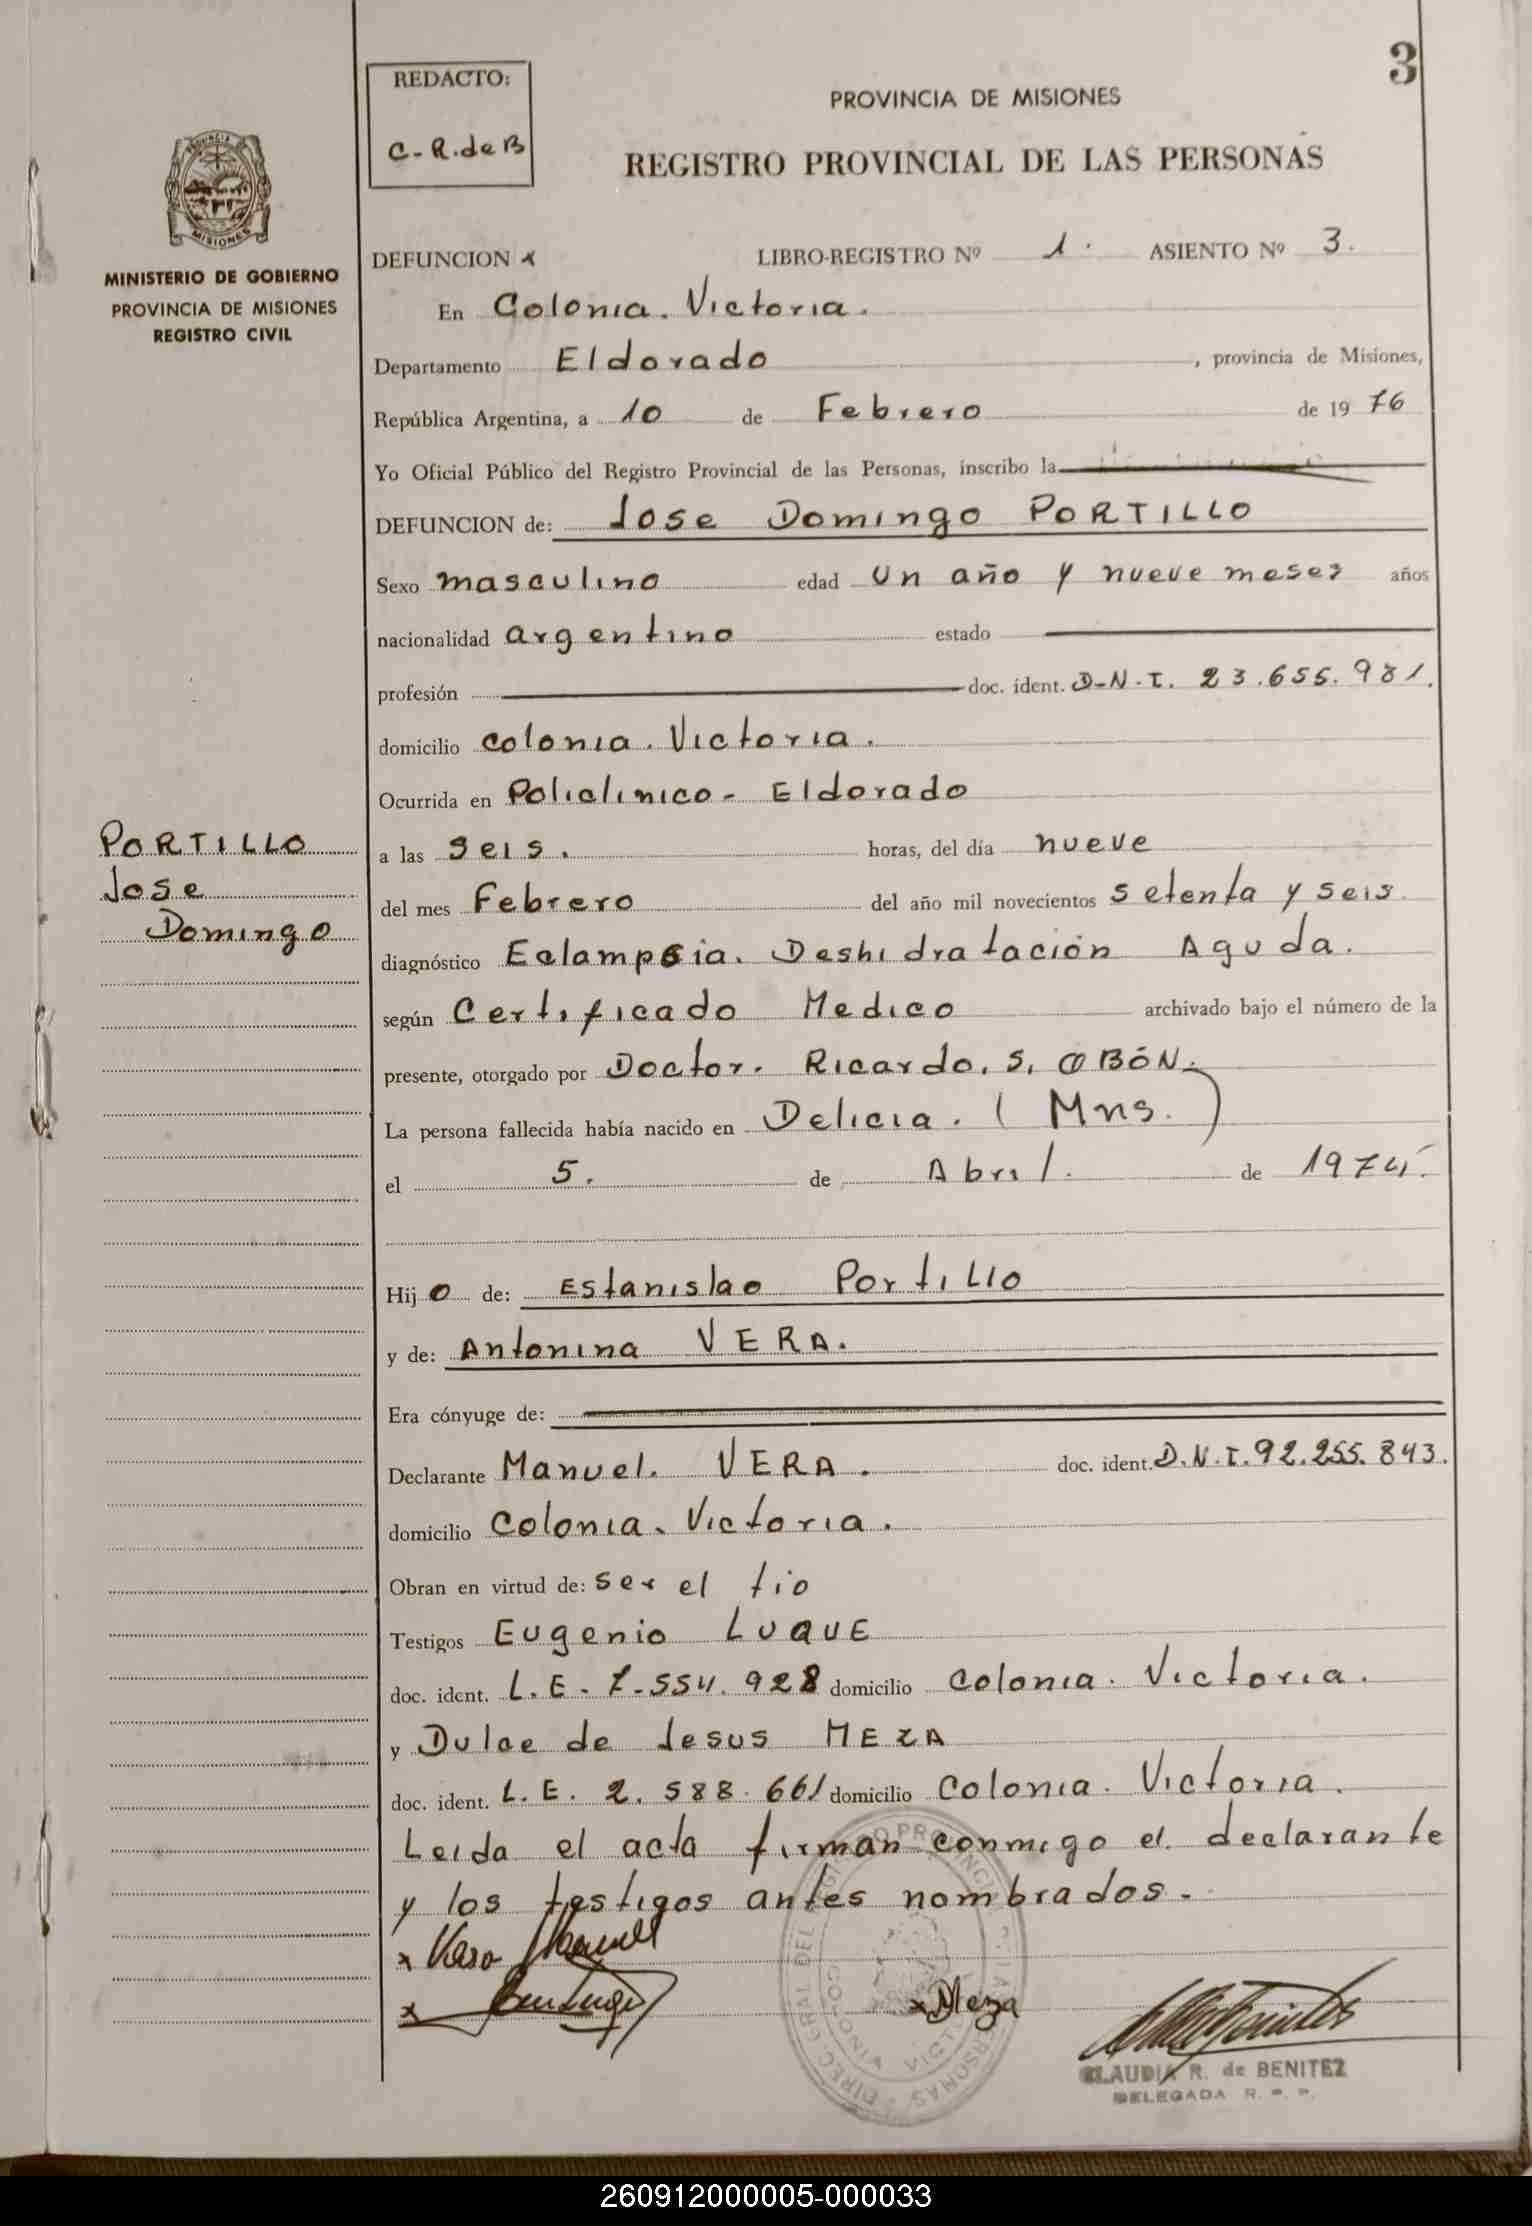 3
REDACTO:
C-R.de B
PROVINCIA DE MISIONES
REGISTRO PROVINCIAL DE LAS PERSONAS
MISIONES
MINISTERIO DE GOBIERNO
PROVINCIA DE MISIONES
REGISTRO CIVIL
DEFUNCION LIBRO-REGISTRO Nº 1. ASIENTO Nº 3.
En Colonia. Victoria.
Departamento Eldorado, provincia de Misiones,
República Argentina, a 10 de Febrero de 1976
Yo Oficial Público del Registro Provincial de las Personas, inscribo la
DEFUNCION de: Jose Domingo PORTILLO
Sexo masculino edad un año y nueve meses años
nacionalidad argentino estado
profesión doc. ident. D-N-I. 23.655.981.
domicilio colonia. Victoria.
Ocurrida en Policlinico- Eldorado
PORTILLO
Jose
Domingo
a las seis. horas, del día nueve
del mes Febrero del año mil novecientos setenta y seis.
diagnóstico Eclampsia. Deshidratación Aguda.
según Certificado Medico archivado bajo el número de la
presente, otorgado por Doctor. Ricardo. S. OBÓN.
La persona fallecida había nacido en Delicia. (Mns.)
el 5. de Abril. de 1974.
Hijo de: Estanislao Portillo
y de: Antonina VERA.
Era cónyuge de:
Declarante Manuel. VERA. doc. ident. D.N.I. 92.255.843.
domicilio Colonia. Victoria.
Obran en virtud de: ser el tio
Testigos Eugenio LUQUE
doc. ident. L.E-7-554.928 domicilio Colonia. Victoria.
y Dulce de Jesus MEZA
doc. ident. L.E. 2.588.661 domicilio Colonia. Victoria.
Leida el acta firman conmigo el declarante
y los testigos antes nombrados.-
x Vera Manuel
x
x Meza
CLAUDIA R. de BENITEZ
DELEGADA R. P. P.
260912000005-000033